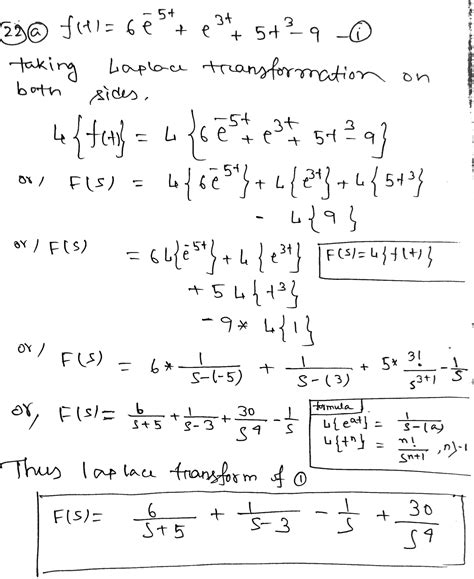 22) a) f(t) = 6e^{-5t} + e^{3t} + 5t^3 - 9 - (i)
taking Laplace transformation on
both sides.
L{f(t)} = L{6e^{-5t} + e^{3t} + 5t^3 - 9}
or, F(s) = L{6e^{-5t}} + L{e^{3t}} + L{5t^3}
- L{9}
or, F(s) = 6L{e^{-5t}} + L{e^{3t}} F(s) = L{f(t)}
+ 5L{t^3}
- 9* L{1}
or, F(s) = 6* 1/(s-(-5)) + 1/(s-(3)) + 5* 3!/s^{3+1} - 1/s
or, F(s) = 6/(s+5) + 1/(s-3) + 30/s^4 - 1/s
formula
L{e^{at}} = 1/(s-(a)
L{t^n} = n!/s^{n+1}, n>-1
Thus laplace transform of (1)
F(s) = 6/(s+5) + 1/(s-3) - 1/s + 30/s^4